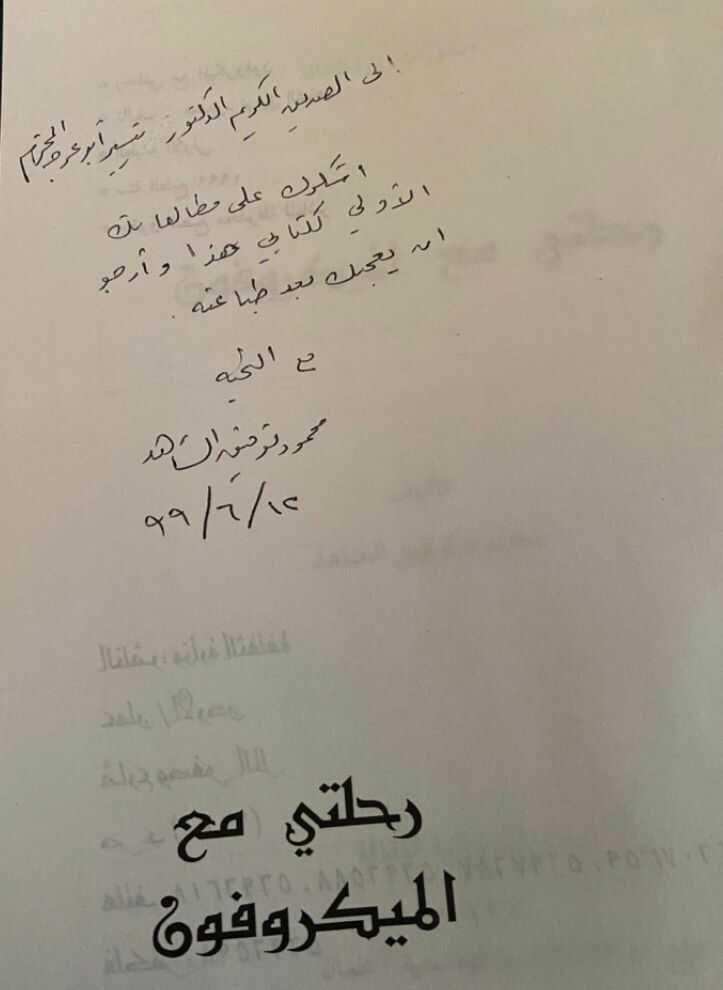 إلى الصديق الكريم الدكتور تيسير أبو عرجه المحترم
اشكرك على مطالعاتك
الأولى لكتابي هذا وأرجو
ان يعجبك بعد طباعته .
مع التحيه
محمود توفيق الشاهد
٩٩/٦/١٢
رحلتي مع
الميكروفون